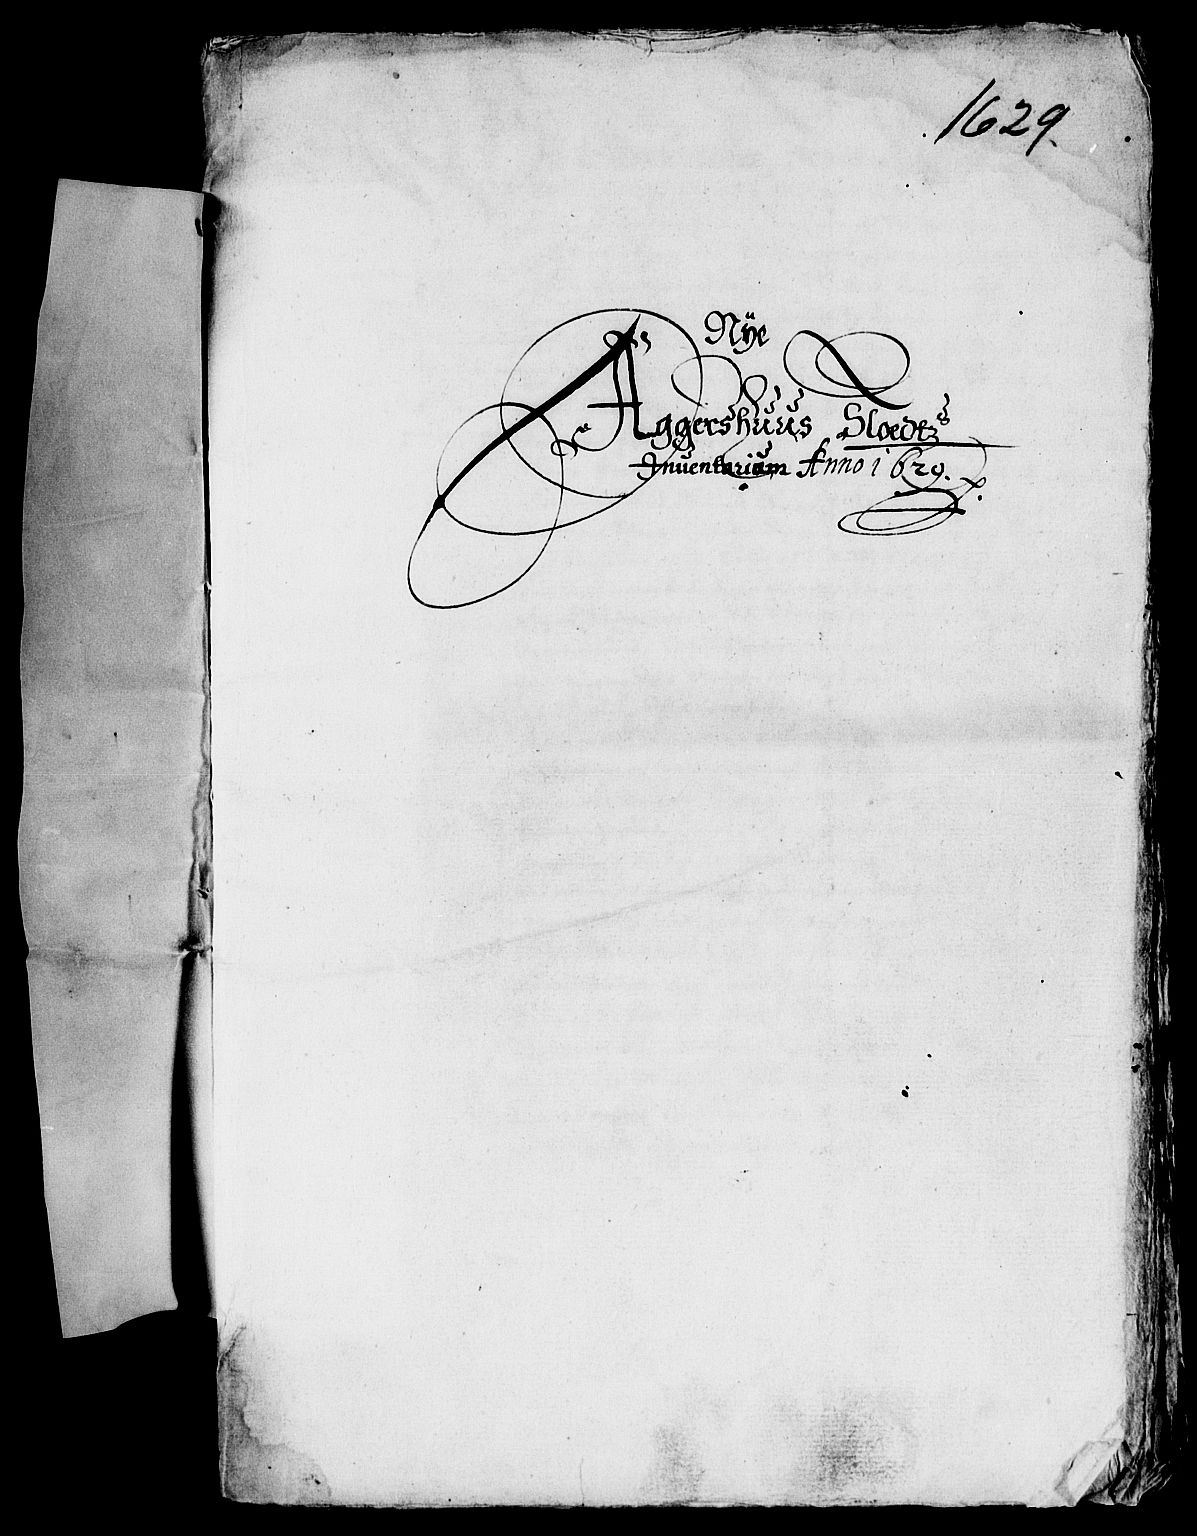 1629.
Nÿe
Aggershuus Sloedtz
Inventarium Anno 1629.